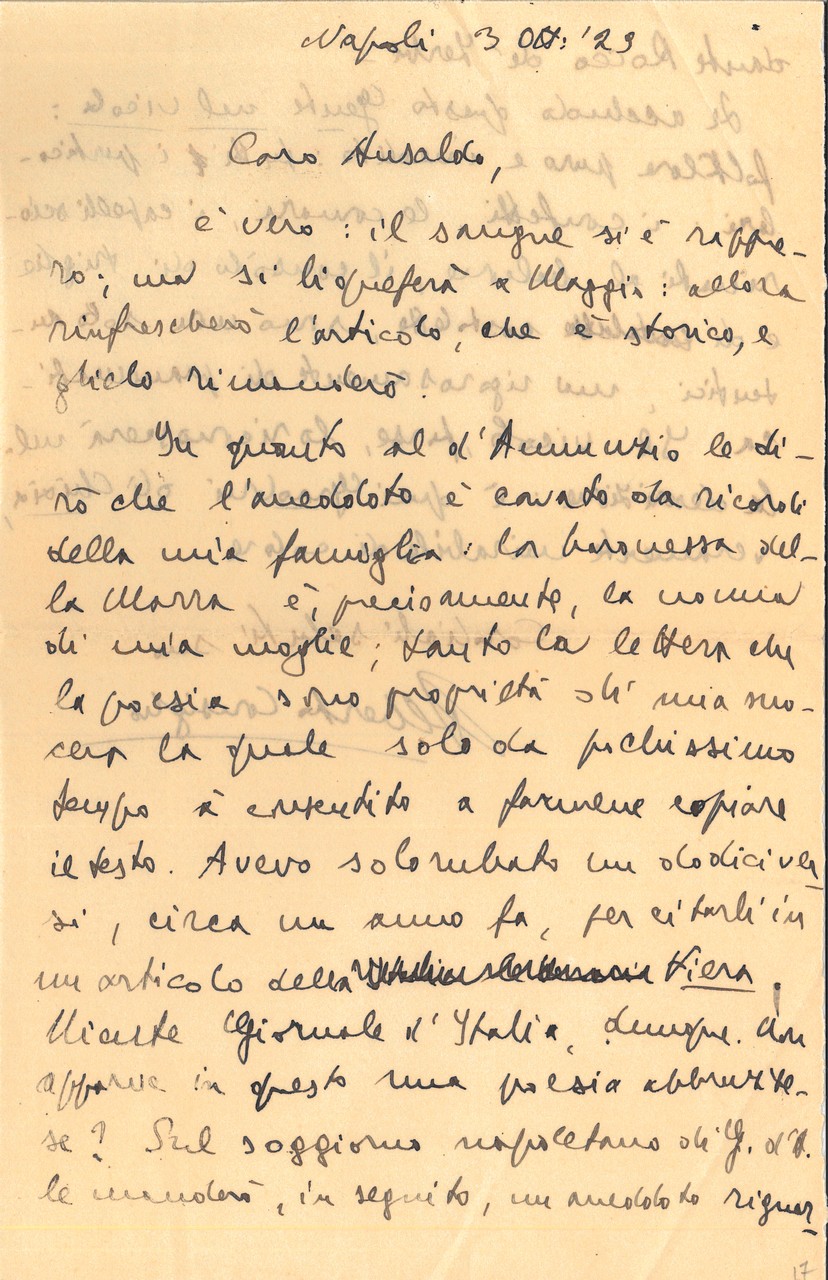 Napoli 3 Ott: '29
Caro Ansaldo,
è vero: il sangue si è rappre-
so; ma si liqueferà a Maggio: allora
rinfrescherò l'articolo, che è storico, e
glielo rimanderò.
In quanto al d'Annunzio le di-
rò che l'aneddoto è cavato da ricordi
della mia famiglia: la baronessa del-
la Marra è, precisamente, la nonna
di mia moglie; tanto la lettera che
la poesia sono proprietà di mia suo-
cera la quale solo da pochissimo
tempo à consentito a farmene copiare
il testo. Avevo solo rubato un dodici ver-
si, circa un anno fa, per citarli in
un articolo della Fiera.
Niente Giornale d'Italia, dunque. Non
apparve in questo una poesia abbruzze-
se? Sul soggiorno napoletano di G. d'A.
le manderò, in seguito, un aneddoto riguar-
17